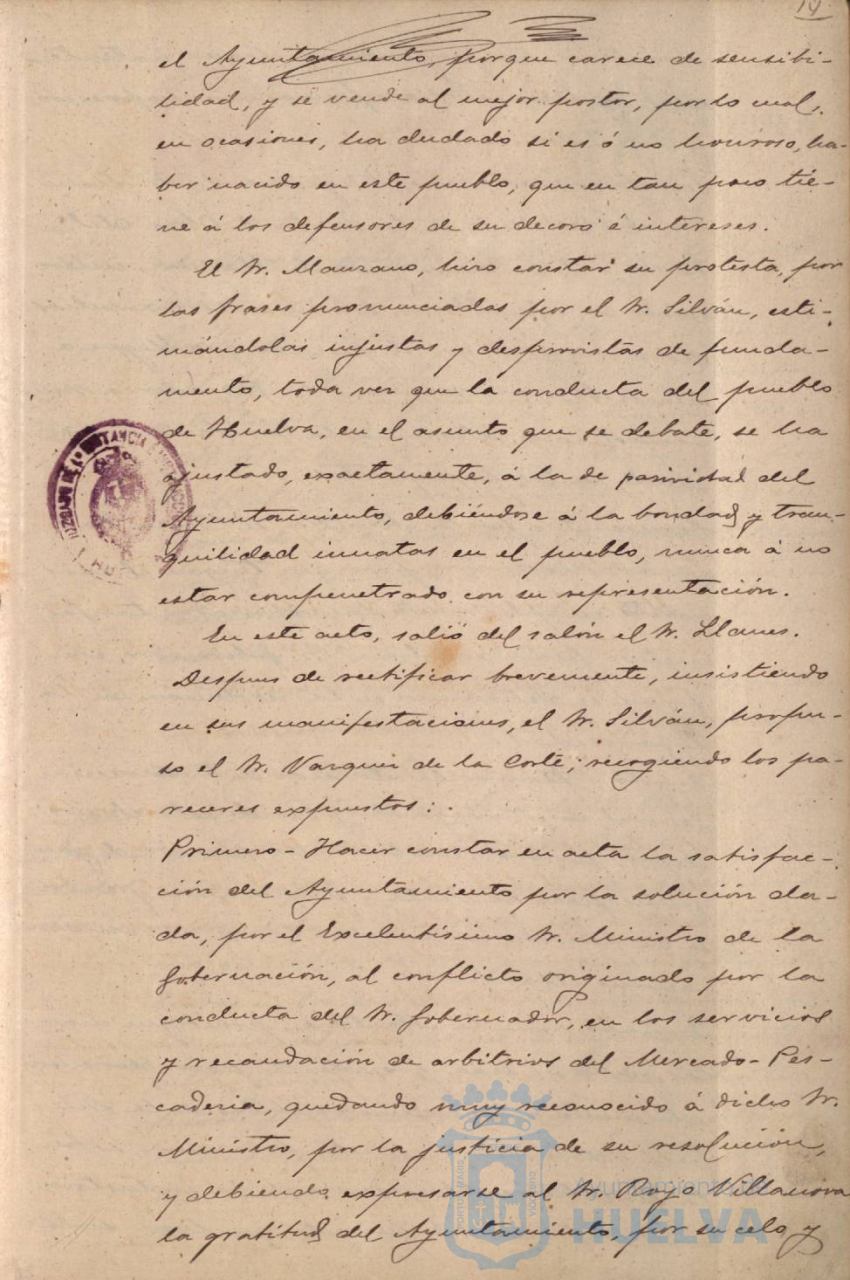 14
el Ayuntamiento, porque carece de sensibi-
lidad, y se vende al mejor postor, por lo cual,
en ocasiones, ha dudado si es ó no honroso, ha-
ber nacido en este pueblo, que en tan poco tie-
ne á los defensores de su decoro é intereses.
El Sr. Manzano, hizo constar su protesta, por
las frases pronunciadas por el Sr. Silván, esti-
mándolas injustas y desprovistas de funda-
mento, toda vez que la conducta del pueblo
de Huelva, en el asunto que se debate, se ha
ajustado, exactamente, á la de pasividad del
Ayuntamiento, debiéndose á la bondad y tran-
quilidad innatas en el pueblo, nunca á no
estar compenetrado con su representación.
En este acto, salió del salón el Sr. Llanes.
Despues de rectificar brevemente, insistiendo
en sus manifestaciones, el Sr. Silván, propu-
so el Sr. Vazquez de la Corte, recogiendo los pa-
receres expuestos:
Primero - Hacer constar en acta la satisfac-
ción del Ayuntamiento por la solución da-
da, por el Excelentísimo Sr. Ministro de la
Gobernación, al conflicto originado por la
conducta del Sr. Gobernador, en los servicios
y recaudación de arbitrios del Mercado-Pes-
caderia, quedando muy reconocido á dicho Sr.
Ministro, por la justicia de su resolución,
y debiendo expresarse al Sr. Royo Villanova
la gratitud del Ayuntamiento, por su celo y
JUZGADO DE 1ª INSTANCIA
Ayuntamiento de
HUELVA